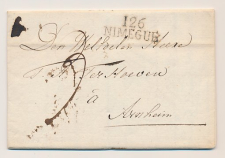 126
NIMEGUE
Den Welhelen Heere
Ter Hoeven
à
Arnhem